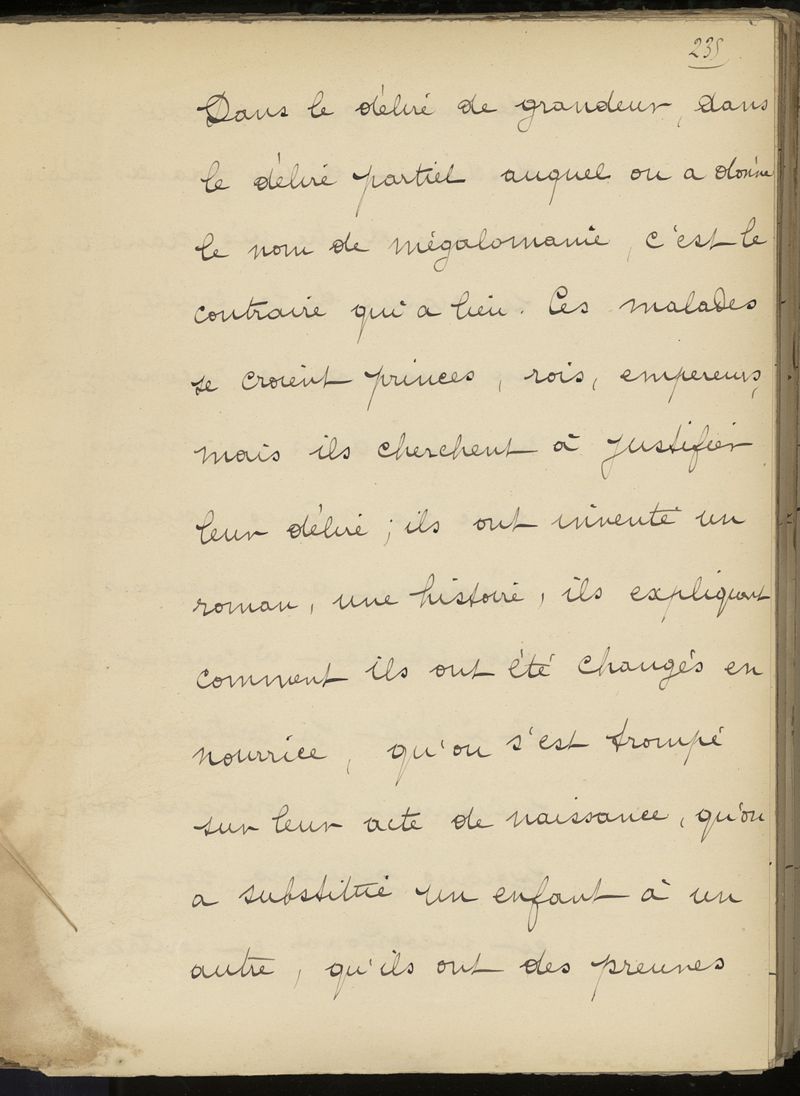 235
Dans le délire de grandeur, dans
le délire partiel auquel on a donné
le nom de mégalomanie, c'est le
contraire qui a lieu. Ces malades
se croient princes, rois, empereurs,
mais ils cherchent à justifier
leur délire ; ils ont inventé un
roman, une histoire, ils expliquent
comment ils ont été changés en
nourrice, qu'on s'est trompé
sur leur acte de naissance, qu'on
a substitué un enfant à un
autre, qu'ils ont des preuves